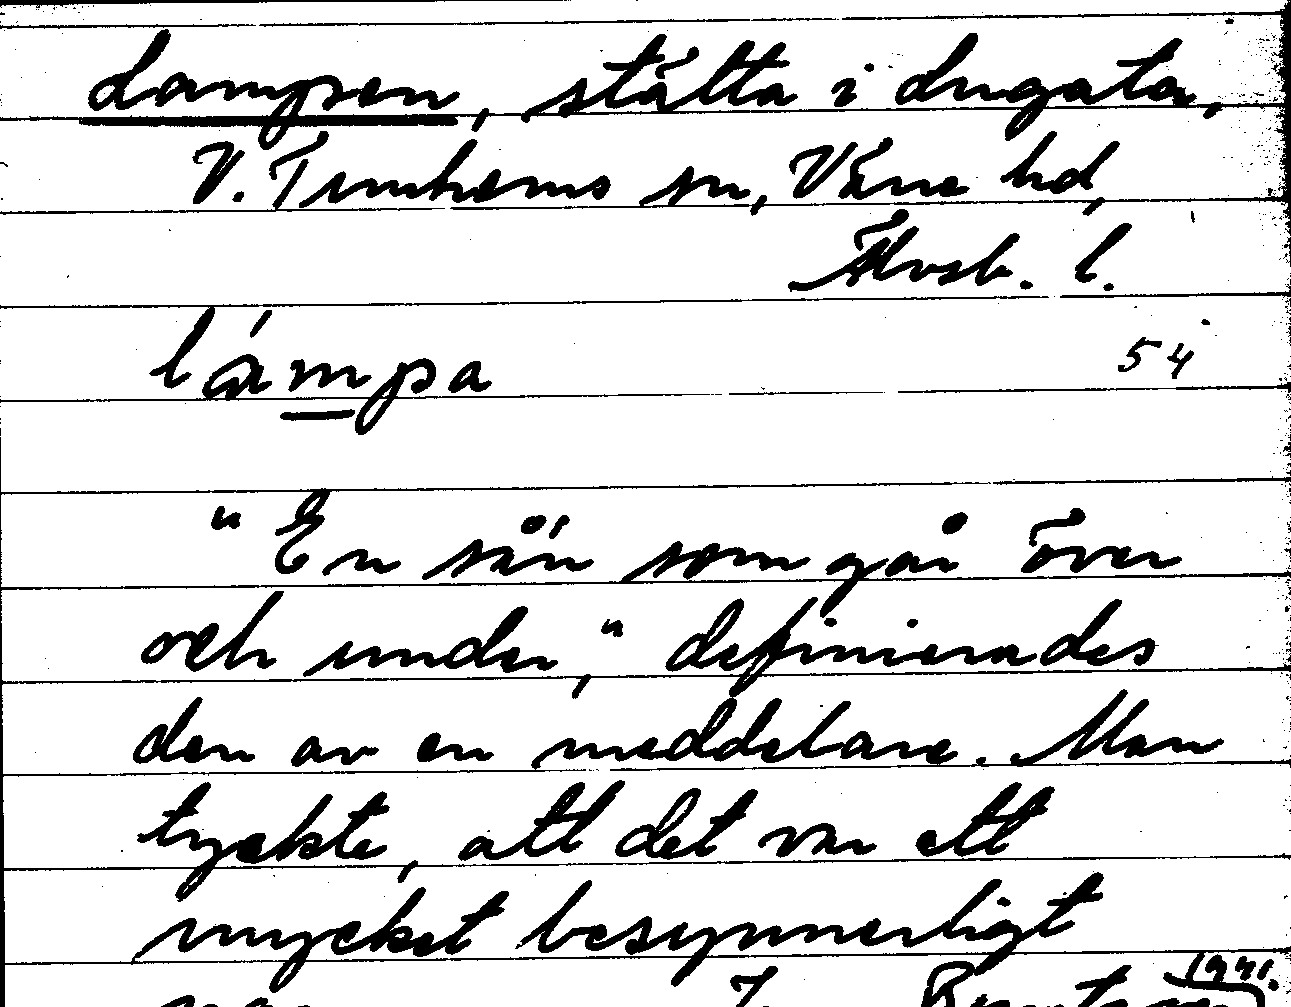 Lampen, ställa i Lugata,
V. Tunhems sn, Väne hd,
Älvsb. l.
lámpa 54
"En sån som går över
och under," definierades
den av en meddelare. Man
tyckte, att det var ett
mycket besynnerligt
1941.